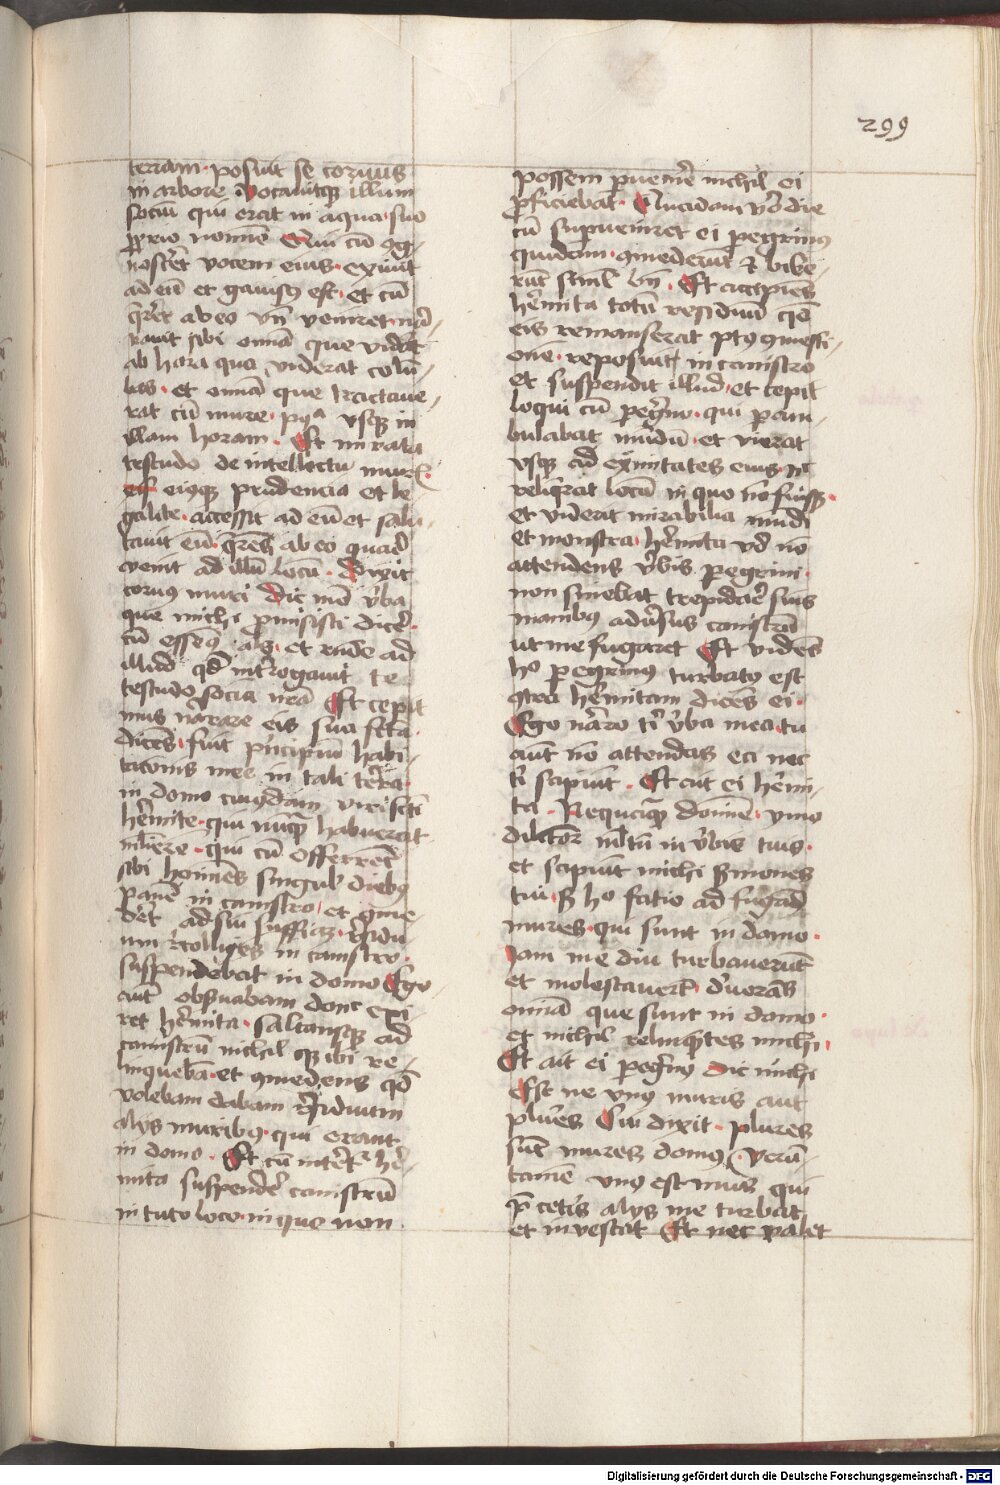 299
terram · posuit se corvus
in arbore vocavitque illum
sociū qui erat in aqua · suo
ꝓprio nomine Qui cū cog-
nosceret vocem eius · exivit
ad eū et gavisus est · et cū
q̄reret ab eo vn̄ veniret · nar-
ravit sibi omnia que viderat
ab hora qua viderat colū-
bas · et omnia que tractave-
rat cū mure · post usque in
illam horam · Et mirata
testudo de intellectu muris
eiusque prudencia et le-
galitate · accessit ad eū et salu-
tavit eū · q̄rens ab eo quare
venit ad illū locū · Dixit
corvus muri dic mihi v̄ba
que michi promisisti dicere
cū essemus alibi · et runde ad
illud qd̄ int̄rogavit te
testudo socia mea Et cepit
mus narrare eis sua facta
dicens · fuit pͥncipiū habi-
tationis mee in tali terra
in domo cuiusdam viri sancti
hēmite · qui nūquam habuerat
mulierē · qui cū offerrent
sibi homines singulis diebus
panē in canistro · et come-
deret ad sui sufficientiam residu-
um recolligens in canistro ·
suspendebat in domo Ego
autē observabam donec exi-
ret hēmita · saltansque ad
canistrū nichil quod ibi re-
linquebā · et comedens qd̄
volebam dabam residuum
alijs muribus · qui erant
in domo · Et cū intenderet hē-
mita suspendere canistrū
in tuto loco · in quo non
possem pervenire nichil ei
proficiebat · Quadam v̄o die
cū supveniret ei peregrinus
quidam · comederūt et bibe-
rūt simul bn̄ · Et accipiens
hēmita totū residuū qd̄
eis remanserat post comesti-
onē · reposuit in canistro
et suspendit illud · et cepit
loqui cū pegrino · qui peram-
bulabat mūdū · et vierat
usque ad extremitates eius · nec
reliquerat locū in quo nō fuisset
et viderat mirabilia mūdi
et monstra · hēmita vero nō
attendens v̄bis peregrini ·
non sinebat trepidare suis
manibus adversus canistrū
ut me fugaret Et videns
hoc peregrinus turbatus est
contra hēmitam dicens ei ·
Ego narro tibi v̄ba mea · tu
autē nō attendas ea nec
tibi sapiunt · Et ait ei hēmi-
ta · Nequaquam domine · ymo
dilector multū in v̄bis tuis ·
et sapiunt michi sermones
tui · sed hoc facio ad fugand
mures · qui sunt in domo ·
Iam me diu turbaverūt
et molestaverūt devorans
omnia que sunt in domo ·
et nichil relinquentes michi
Et ait ei peregrinus dic michi
Est ne unus muris aut
plures Cui dixit · plures
sūt mures domus · verū-
tamē unus est mus qui
pre ceteris alijs me turbat
et investat Et nec valet
Digitalisierung gefördert durch die Deutsche Forschungsgemeinschaft - DFG